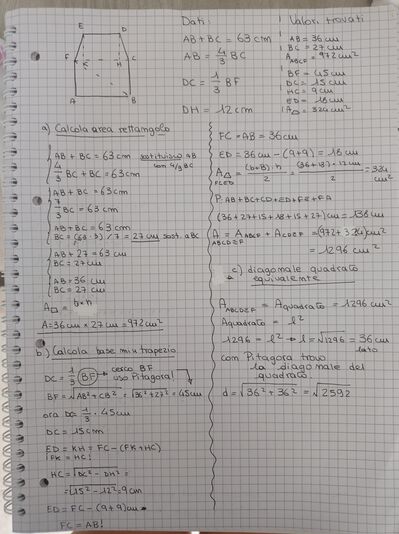 E D
F K H C
A B
Dati:
AB + BC = 63 cm
AB = 4/3 BC
DC = 1/3 BF
DH = 12 cm
Valori trovati
AB = 36 cm
BC = 27 cm
A ABCF = 972 cm²
BF = 45 cm
DC = 15 cm
HC = 9 cm
ED = 18 cm
A = 324 cm²
a) Calcola area rettangolo
AB + BC = 63 cm sostituisco AB
con 4/3 BC
4/3 BC + BC = 63 cm
AB + BC = 63 cm
7/3 BC = 63 cm
AB + BC = 63 cm
BC = (63·3)/7 = 27 cm sost. a BC
AB + 27 = 63 cm
BC = 27 cm
AB = 36 cm
BC = 27 cm
A = b × h
A = 36 cm × 27 cm = 972 cm²
b) Calcola base min trapezio
DC = 1/3 BF → cerco BF
uso Pitagora!
BF = √AB² + CB² = √36² + 27² = 45 cm
ora DC = 1/3 · 45 cm
DC = 15 cm
ED = KH = FC - (FK + HC)
FK = HC!
HC = √DC² - DH² =
= √15² - 12² = 9 cm
ED = FC - (9+9) cm
FC = AB!
FC = AB = 36 cm
ED = 36 cm - (9+9) = 18 cm
A FCED = (b+B)·h / 2 = (36+18)·12 cm / 2 = 324 cm²
P: AB + BC + CD + ED + FE + FA
(36 + 27 + 15 + 18 + 15 + 27) cm = 138 cm
A ABCDEF = A ABCF + A CDEF = (972 + 324) cm²
= 1296 cm²
c) diagonale quadrato
equivalente
A ABCDEF = A quadrato = 1296 cm²
A quadrato = l²
1296 = l² → l = √1296 = 36 cm
lato
con Pitagora trovo
la diagonale del
quadrato
d = √36² + 36² = √2592